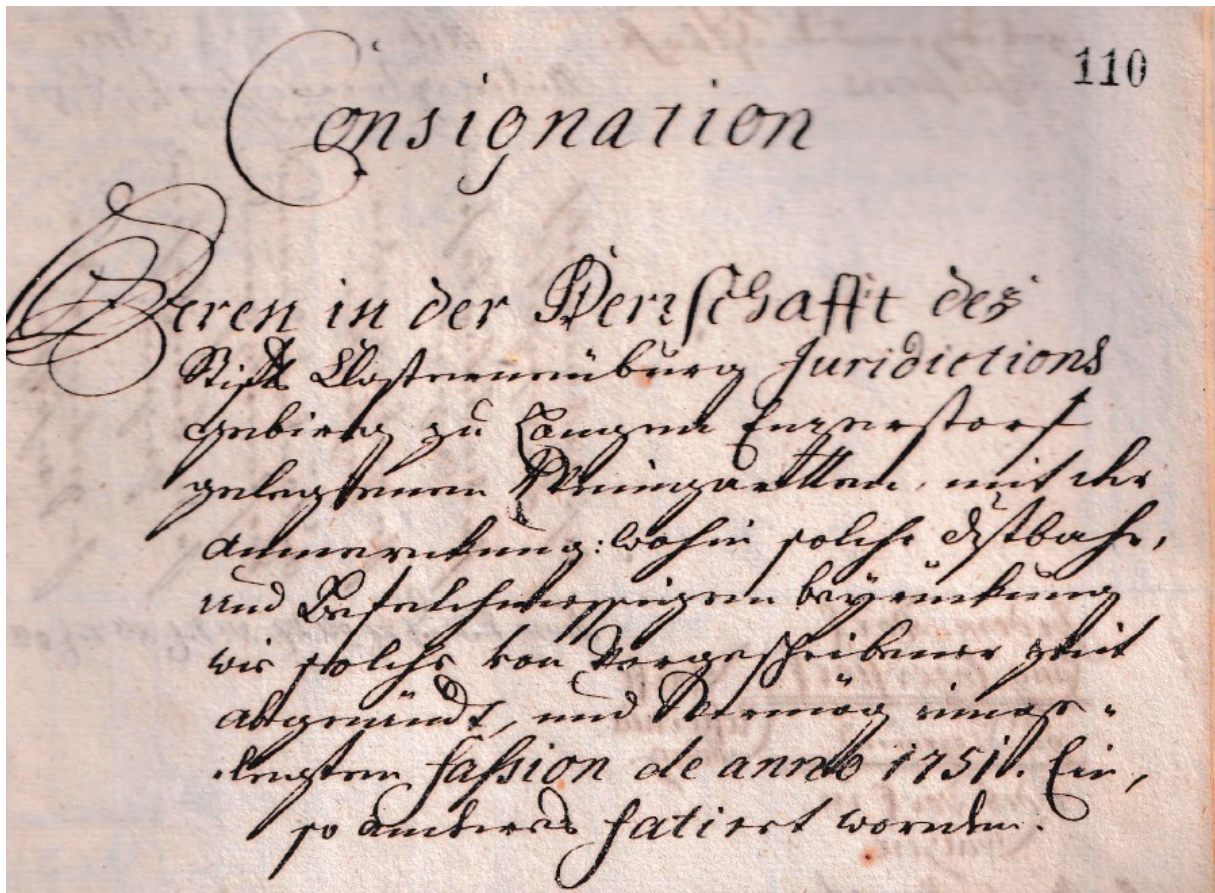 110
Consignation
Deren in der Herrschafft des
Stifft Closterneüburg Jurisdictions
gebieth zu Langen Enzerstorf
gelegenen Weingartten, mit der
anmerckung: wohin solche
und beyruckung
wie solche von Vorgeschribener Zeit
und Vermög einge-
legten Fassion de anno 1751. Ein,
so anderes fatiert worden.